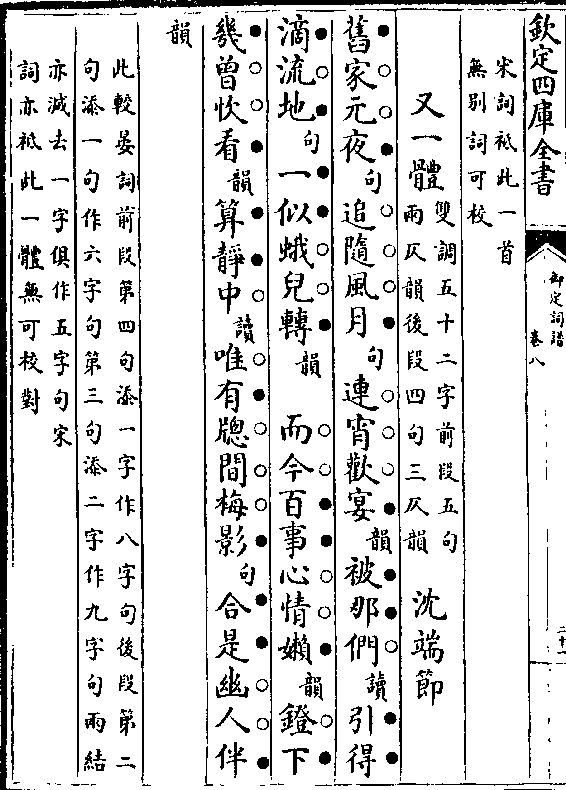 欽定四庫全書
御定詞譜
卷八
二十一
宋詞祇此一首
無別詞可校
又一體
雙調五十二字前段五句
兩仄韻後段四句三仄韻
沈端節
舊家元夜句追隨風月句連宵歡宴韻被那們讀引得
滴流地句一似蛾兒轉韻 而今百事心情嬾韻鐙下
幾曾忺看韻算靜中讀唯有牕間梅影句合是幽人伴
韻
此較晏詞前段第四句添一字作八字句後段第二
句添一句作六字句第三句添二字作九字句兩結
亦減去一字俱作五字句宋
詞亦祇此一體無可校對